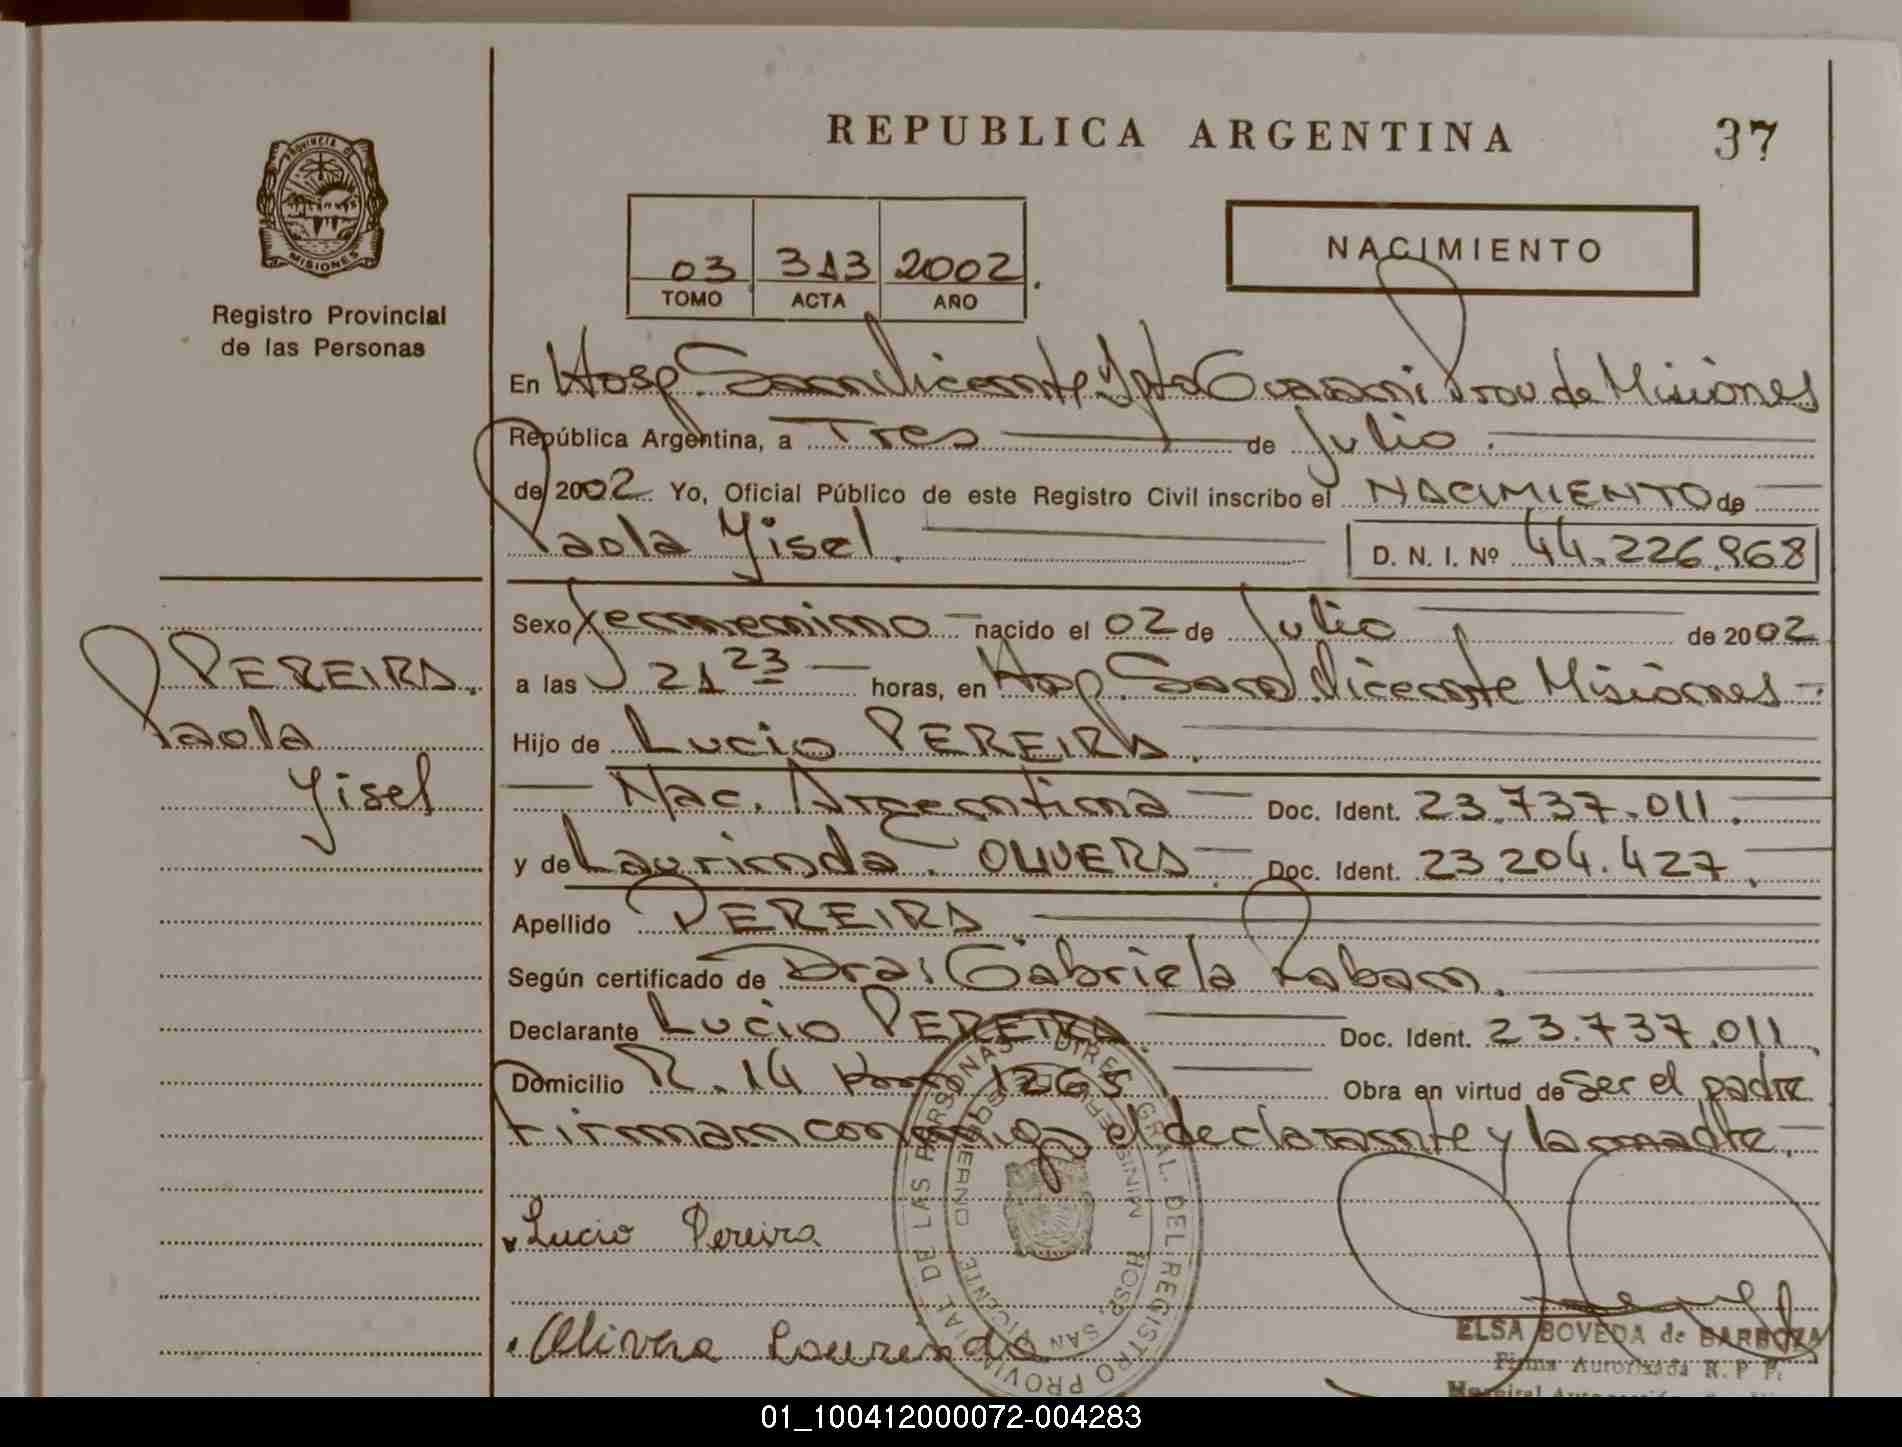 REPUBLICA ARGENTINA
37
PROVINCIA DE
MISIONES
Registro Provincial
de las Personas
03 313 2002
TOMO ACTA AÑO
NACIMIENTO
En Hosp. San Vicente Dpto Guaraní Prov de Misiones
República Argentina, a Tres de Julio.
de 2002 Yo, Oficial Público de este Registro Civil inscribo el NACIMIENTO de
Paola Yisel. D. N. I. Nº 44.226.968
Sexo Femenino nacido el 02 de Julio de 2002
a las 21 23 horas, en Hosp. San Vicente Misiones
Hijo de Lucio PEREIRA.
Nac. Argentina Doc. Ident. 23.737.011.
y de Laurinda OLIVERA. Doc. Ident. 23.204.427.
Apellido PEREIRA
Según certificado de Dra: Gabriela Laban.
Declarante Lucio PEREIRA. Doc. Ident. 23.737.011.
Domicilio R. 14 Km 1265 Obra en virtud de ser el padre
Firman conmigo el declarante y la madre.
PEREIRA.
Paola
Yisel
Lucio Pereira
Olivera Laurinda
DIREC. GRAL. DEL REGISTRO PROVINCIAL DE LAS PERSONAS
HOSP. SAN VICENTE
ELSA BOVEDA de BARBOZA
Firma Autorizada R. P. P.
01_100412000072-004283